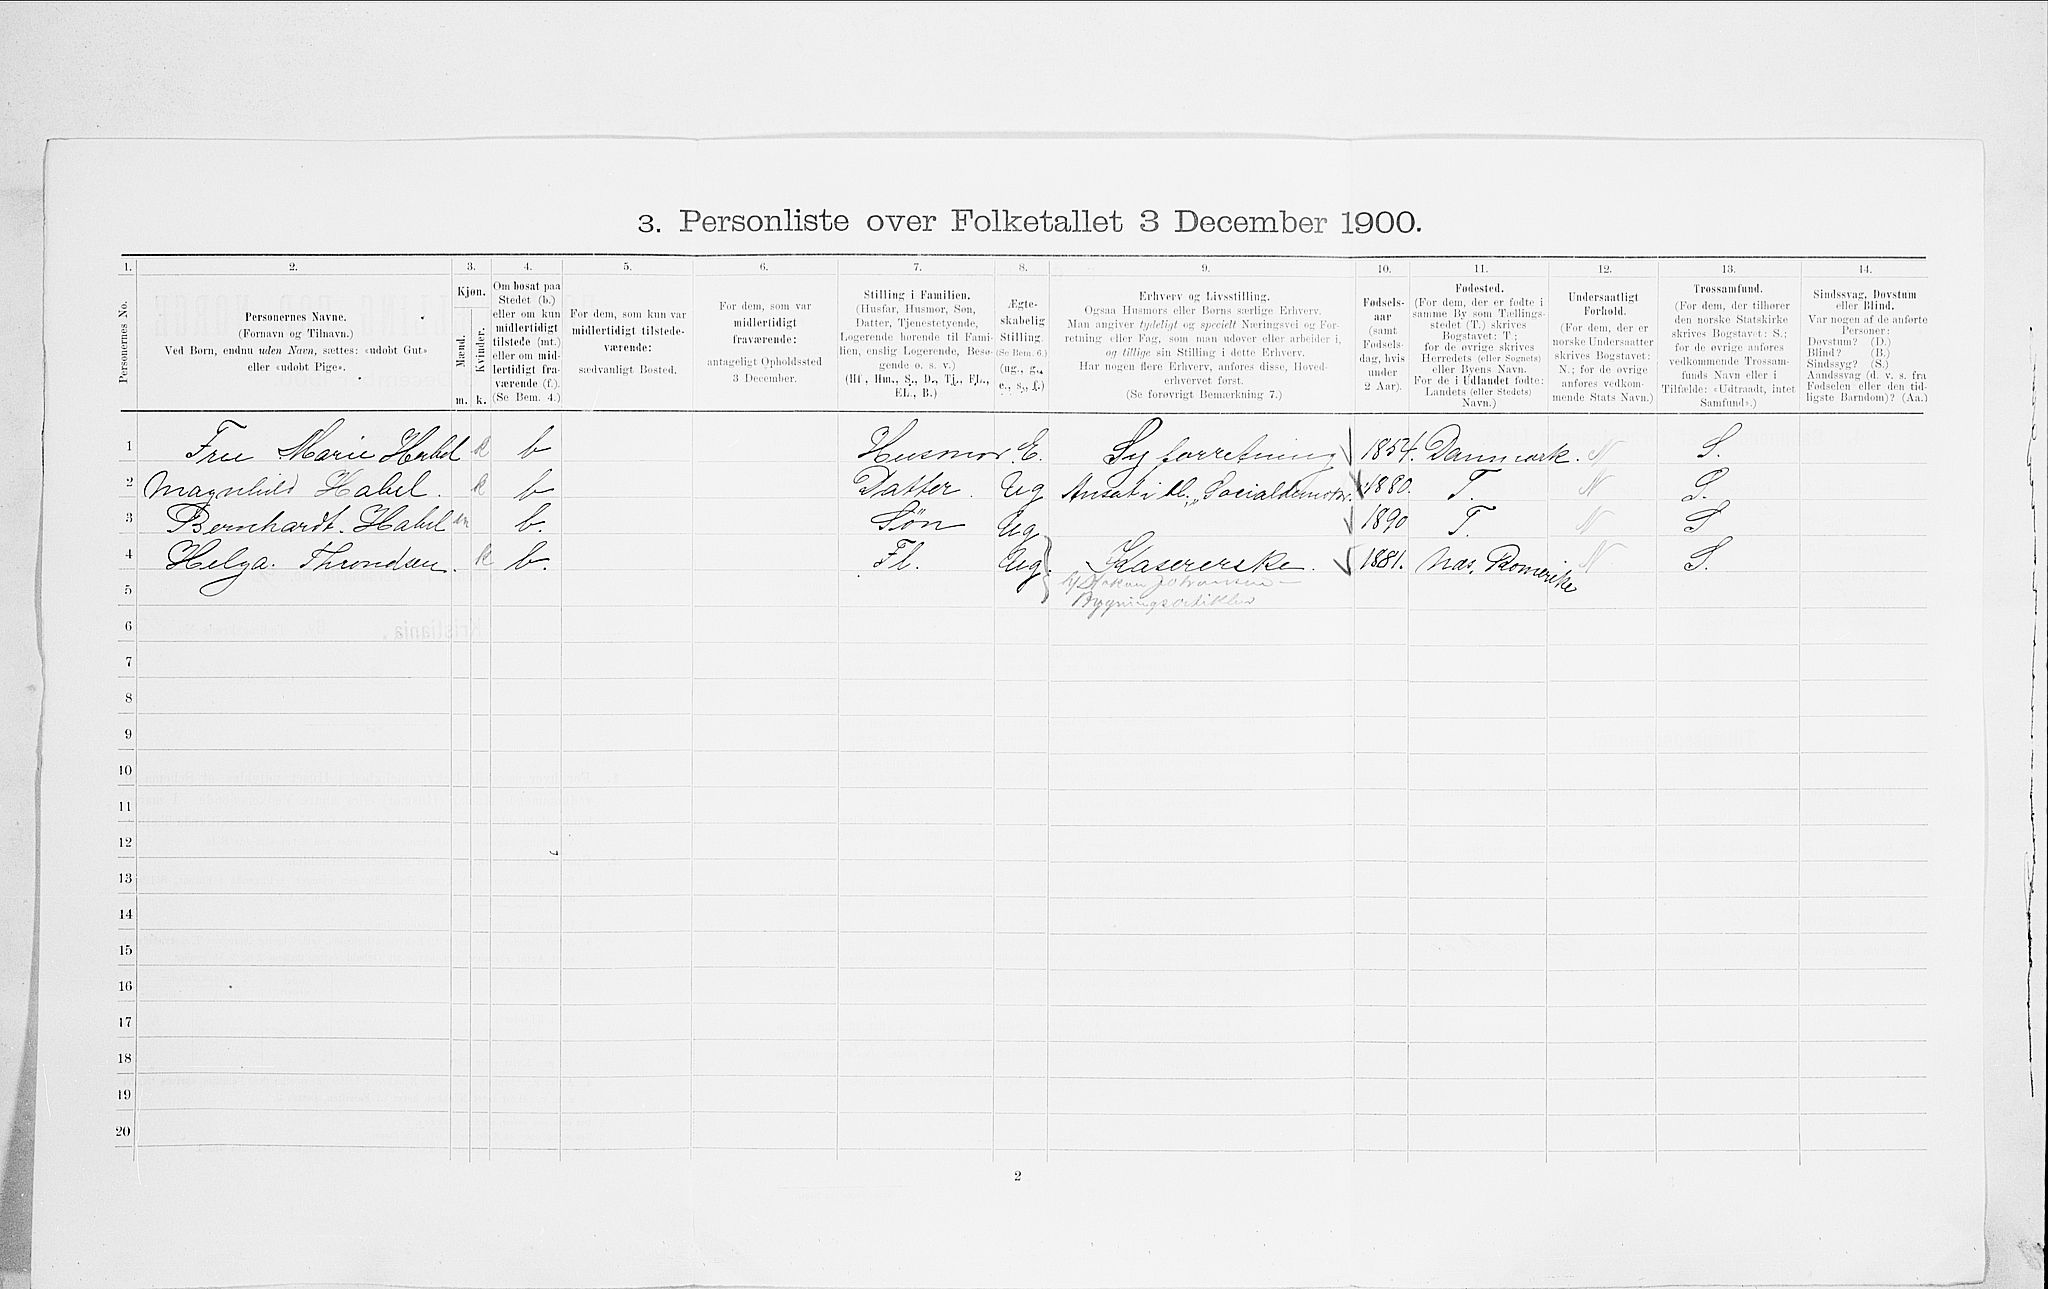 3. Personliste over Folketallet 3 December 1900.
1. 2. 3. 4. 5. 6. 7. 8. 9. 10. 11. 12. 13. 14.
Personernes No.
Personernes Navne.
(Fornavn og Tilnavn.)
Ved Børn, endnu uden Navn, sættes: «udøbt Gut»
eller «udøbt Pige».
Kjøn.
Mænd.
Kvinder.
m. k.
Om bosat paa
Stedet (b.)
eller om kun
midlertidigt
tilstede (mt.)
eller om mid-
lertidigt fra-
værende (f.).
(Se Bem. 4.)
For dem, som kun var
midlertidigt tilstede-
værende:
sædvanligt Bosted.
For dem, som var
midlertidigt
fraværende:
antageligt Opholdssted
3 December.
Stilling i Familien.
(Husfar, Husmor, Søn,
Datter, Tjenestetyende,
Logerende hørende til Fami-
lien, enslig Logerende, Besø-
gende o. s. v.)
(Hf., Hm., S., D., Tj., FL.,
EL., B.)
Ægte-
skabelig
Stilling.
(Se Bem. 6.)
(ug., g.,
e., s., f.)
Erhverv og Livsstilling.
Ogsaa Husmors eller Børns særlige Erhverv.
Man angiver tydeligt og specielt Næringsvei og For-
retning eller Fag, som man udøver eller arbeider i,
og tillige sin Stilling i dette Erhverv.
Har nogen flere Erhverv, anføres disse, Hoved-
erhvervet først.
(Se forøvrigt Bemærkning 7.)
Fødsels-
aar
(samt
Fødsels-
dag, hvis
under
2 Aar).
Fødested.
(For dem, der er fødte i
samme By som Tællings-
stedet (T.) skrives
Bogstavet: T;
for de øvrige skrives
Herredets (eller Sognets)
eller Byens Navn.
For de i Udlandet fødte:
Landets (eller Stedets)
Navn.)
Undersaatligt
Forhold.
(For dem, der er
norske Undersaatter
skrives Bogstavet:
N.; for de øvrige
anføres vedkom-
mende Stats Navn.)
Trossamfund.
(For dem, der tilhører
den norske Statskirke
skrives Bogstavet: S.;
for de øvrige anføres
vedkommende Trossam-
funds Navn eller i
Tilfælde: «Udtraadt, intet
Samfund».)
Sindssvag, Døvstum
eller Blind.
Var nogen af de anførte
Personer:
Døvstum? (D.)
Blind? (B.)
Sindssyg? (S.)
Aandssvag (d. v. s. fra
Fødselen eller den tid-
ligste Barndom)? (Aa.)
1 Frue Marie Habel k b Husmor E. Sy forretning 1854. Danmark. N S.
2 Magnhild Habel. k b Datter. Ug Ansat i bl. „Socialdemokr. 1880. T. N S.
3 Bernhardt. Habel m b. Søn Ug 1890 T. N S
4 Helga. Throndsen. k b. Fl. Ug. Kasererske. 1881. Næs. Romerike N S.
5 Håkon Johansen
Bygningsartikler
6
7
8
9
10
11
12
13
14
15
16
17
18
19
20
2